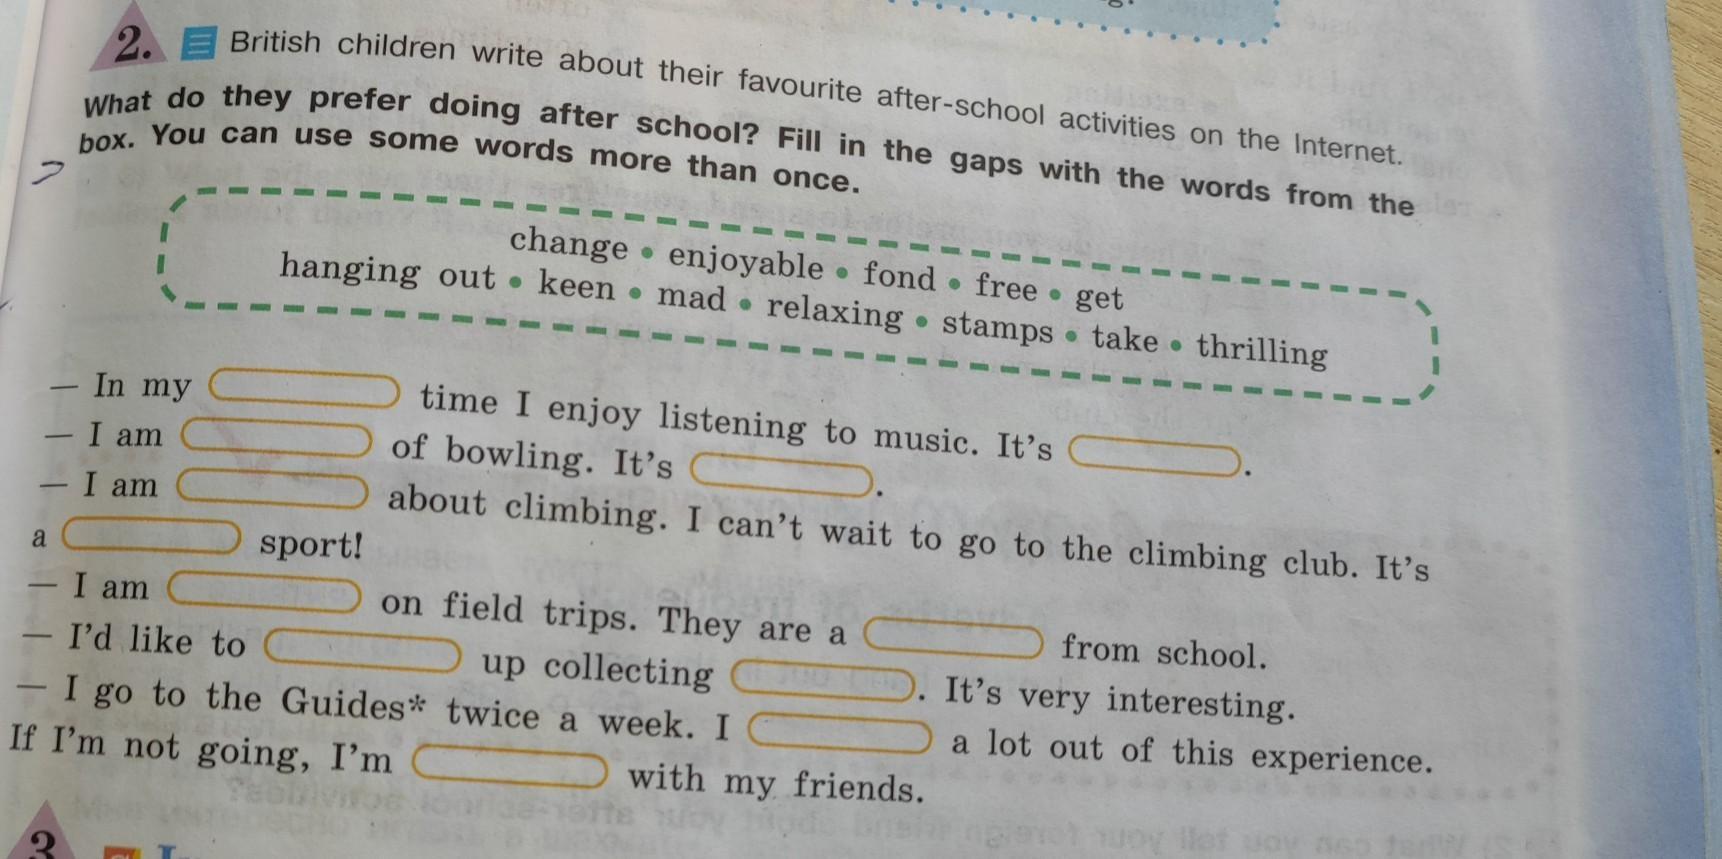 2. British children write about their favourite after-school activities on the Internet.
What do they prefer doing after school? Fill in the gaps with the words from the
box. You can use some words more than once.
change • enjoyable • fond • free • get
hanging out • keen • mad • relaxing • stamps • take • thrilling
— In my time I enjoy listening to music. It's .
— I am of bowling. It's .
— I am about climbing. I can't wait to go to the climbing club. It's
a sport!
— I am on field trips. They are a from school.
— I'd like to up collecting . It's very interesting.
— I go to the Guides* twice a week. I a lot out of this experience.
If I'm not going, I'm with my friends.
3